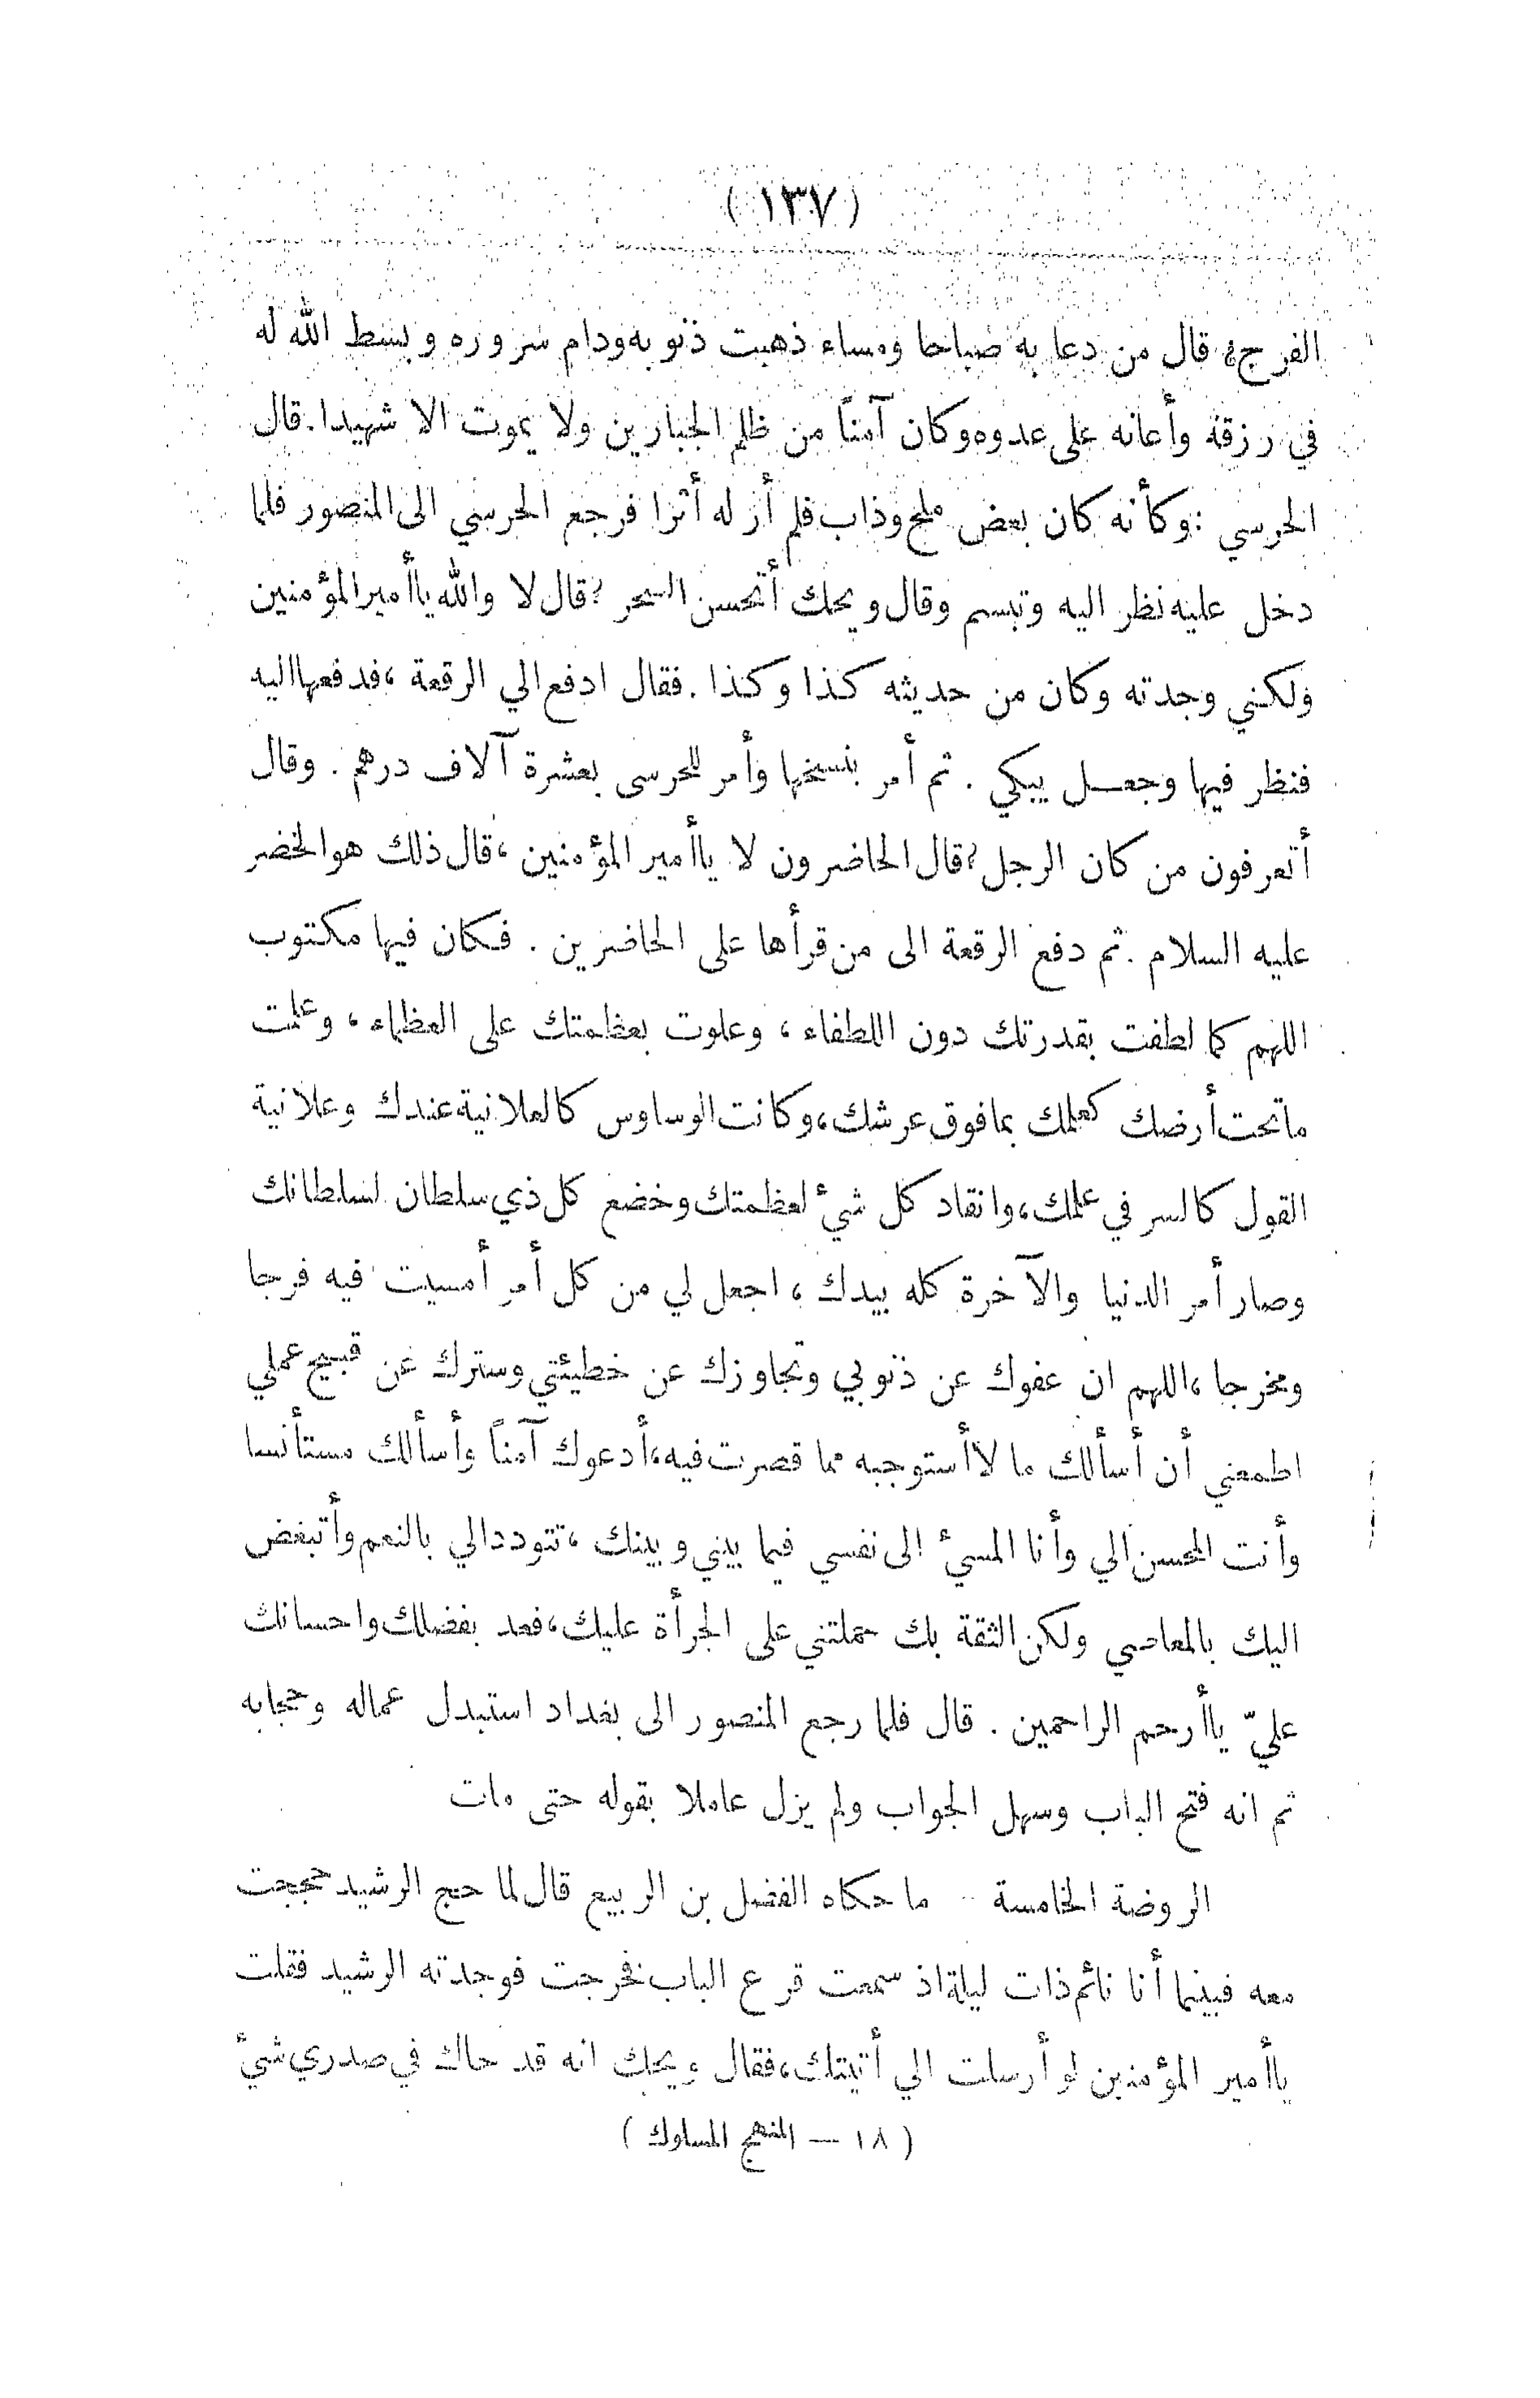 ( ١٣٧ )
الفرج، قال من دعا به صباحا ومساء ذهبت ذنوبه ودام سروره وبسط الله له
في رزقه وأعانه على عدوه وكان آمناً من ظلم الجبارين ولا يموت الا شهيدا. قال
الحرسي : وكأنه كان بعض ملح وذاب فلم أر له أثرا فرجع الحرسي الى المنصور فلما
دخل عليه نظر اليه وتبسم وقال ويحك أتحسن السحر ؟ قال لا والله ياأمير المؤمنين
ولكني وجدته وكان من حديثه كذا وكذا . فقال ادفع الي الرقعة ، فدفعها اليه
فنظر فيها وجعل يبكي . ثم أمر بنسخها وأمر للحرسى بعشرة آلاف درهم . وقال
أتعرفون من كان الرجل ؟ قال الحاضرون لا ياأمير المؤمنين ، قال ذلك هو الخضر
عليه السلام . ثم دفع الرقعة الى من قرأها على الحاضرين . فكان فيها مكتوب
اللهم كما لطفت بقدرتك دون اللطفاء ، وعلوت بعظمتك على العظماء ، وعلمت
ماتحت أرضك كعلمك بما فوق عرشك ، وكانت الوساوس كالعلانية عندك وعلانية
القول كالسر في علمك ، وانقاد كل شيء لعظمتك وخضع كل ذي سلطان لسلطانك
وصار أمر الدنيا والآخرة كله بيدك ، اجعل لي من كل أمر أمسيت فيه فرجا
ومخرجا ، اللهم ان عفوك عن ذنوبي وتجاوزك عن خطيئتي وسترك عن قبيح عملي
اطمعني أن أسألك ما لا أستوجبه مما قصرت فيه ، أدعوك آمناً وأسألك مستأنسا
وأنت المحسن الي وأنا المسيء الى نفسي فيما بيني وبينك ، تتودد الي بالنعم وأتبغض
اليك بالمعاصي ولكن الثقة بك حملتني على الجرأة عليك ، فعد بفضلك واحسانك
عليّ ياأرحم الراحمين . قال فلما رجع المنصور الى بغداد استبدل عماله وحجابه
ثم انه فتح الباب وسهل الجواب ولم يزل عاملا بقوله حتى مات
الروضة الخامسة — ما حكاه الفضل بن الربيع قال لما حج الرشيد حججت
معه فبينما أنا نائم ذات ليلة اذ سمعت قرع الباب فخرجت فوجدته الرشيد فقلت
ياأمير المؤمنين لو أرسلت الي أتيتك ، فقال ويحك انه قد حاك في صدري شيء
( ١٨ — المنهج المسلوك )